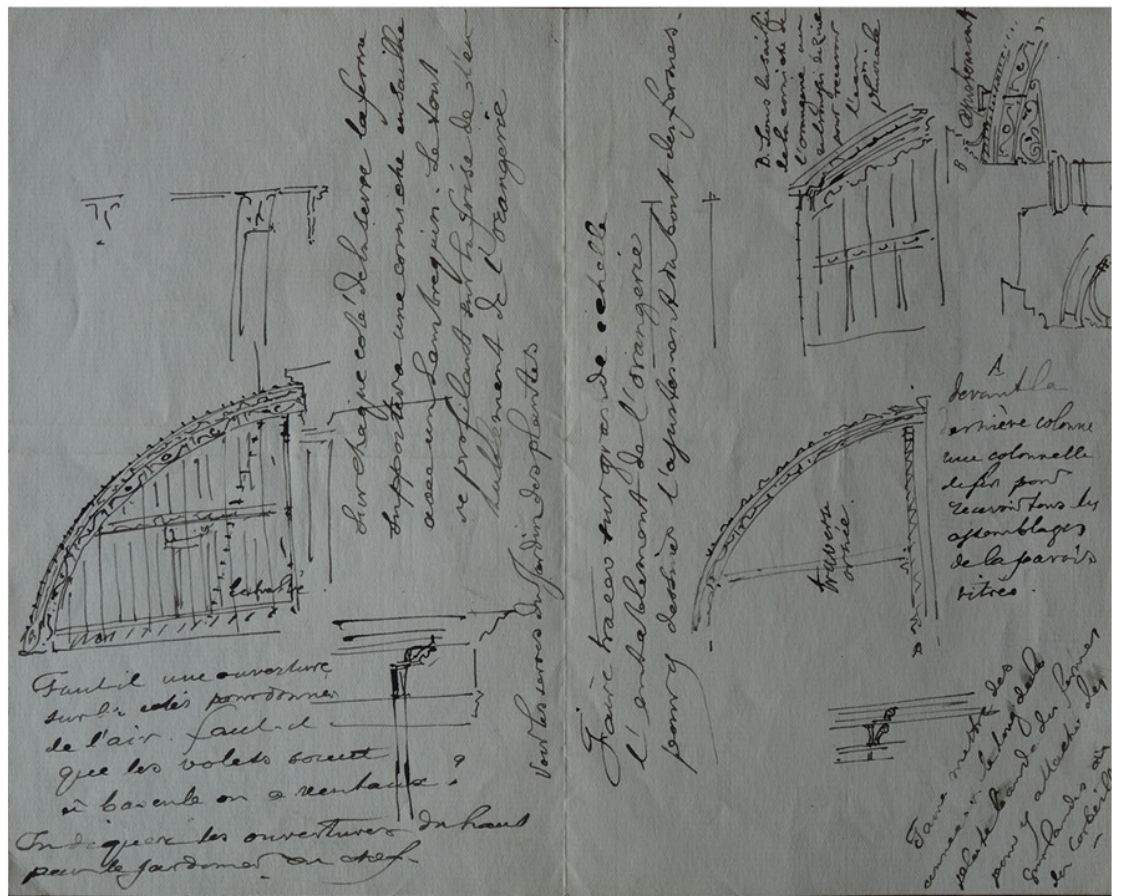 Sur chaque coté de la serre la ferme
supportera une corniche en saillie
avec un lambrequin. Le tout
se profilant sur la frise de l'en
tablement de l'orangerie
Voir les serres du Jardin des plantes
Faut il une ouverture
sur les cotés pour donner
de l'air. faut-il
que les volets soient
à bascule ou a ventaux ?
Indiquer les ouvertures du haut
pour le jardinier en chef.
Faire tracer sur grande echelle
l'entablement de l'orangerie
pour y dessiner l'ajustement du bout des fermes.
B. Sous la saillie
de la corniche de
l'orangerie un
de zinc
pour recevoir
l'eau
pluviale
B
ajustement
traverse
ornée
A
devant la
dernière colonne
une colonnette
de fer pour
recevoir tous les
assemblages
de la parois
vitrée.
Faire mettre des
anneaux le long de la
plate bande du fermes
pour y attacher les
guirlandes ou
les corbeilles